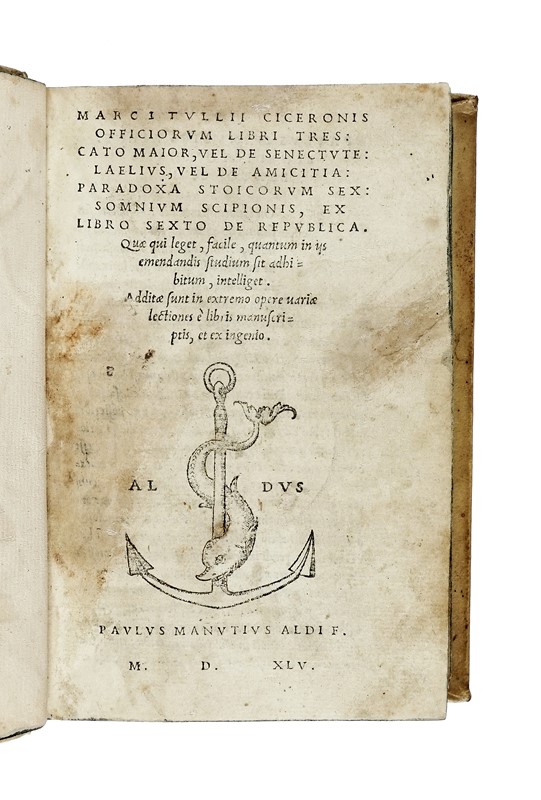 MARCI TVLLII CICERONIS
OFFICIORVM LIBRI TRES:
CATO MAIOR, VEL DE SENECTVTE:
LAELIVS, VEL DE AMICITIA:
PARADOXA STOICORVM SEX:
SOMNIVM SCIPIONIS, EX
LIBRO SEXTO DE REPVBLICA.
Quæ qui leget, facile, quantum in ijs
emendandis ſtudium ſit adhi=
bitum, intelliget.
Additæ ſunt in extremo opere uariæ
lectiones è libris manuſcri=
ptis, et ex ingenio.
AL DVS
PAVLVS MANVTIVS ALDI F.
M. D. XLV.